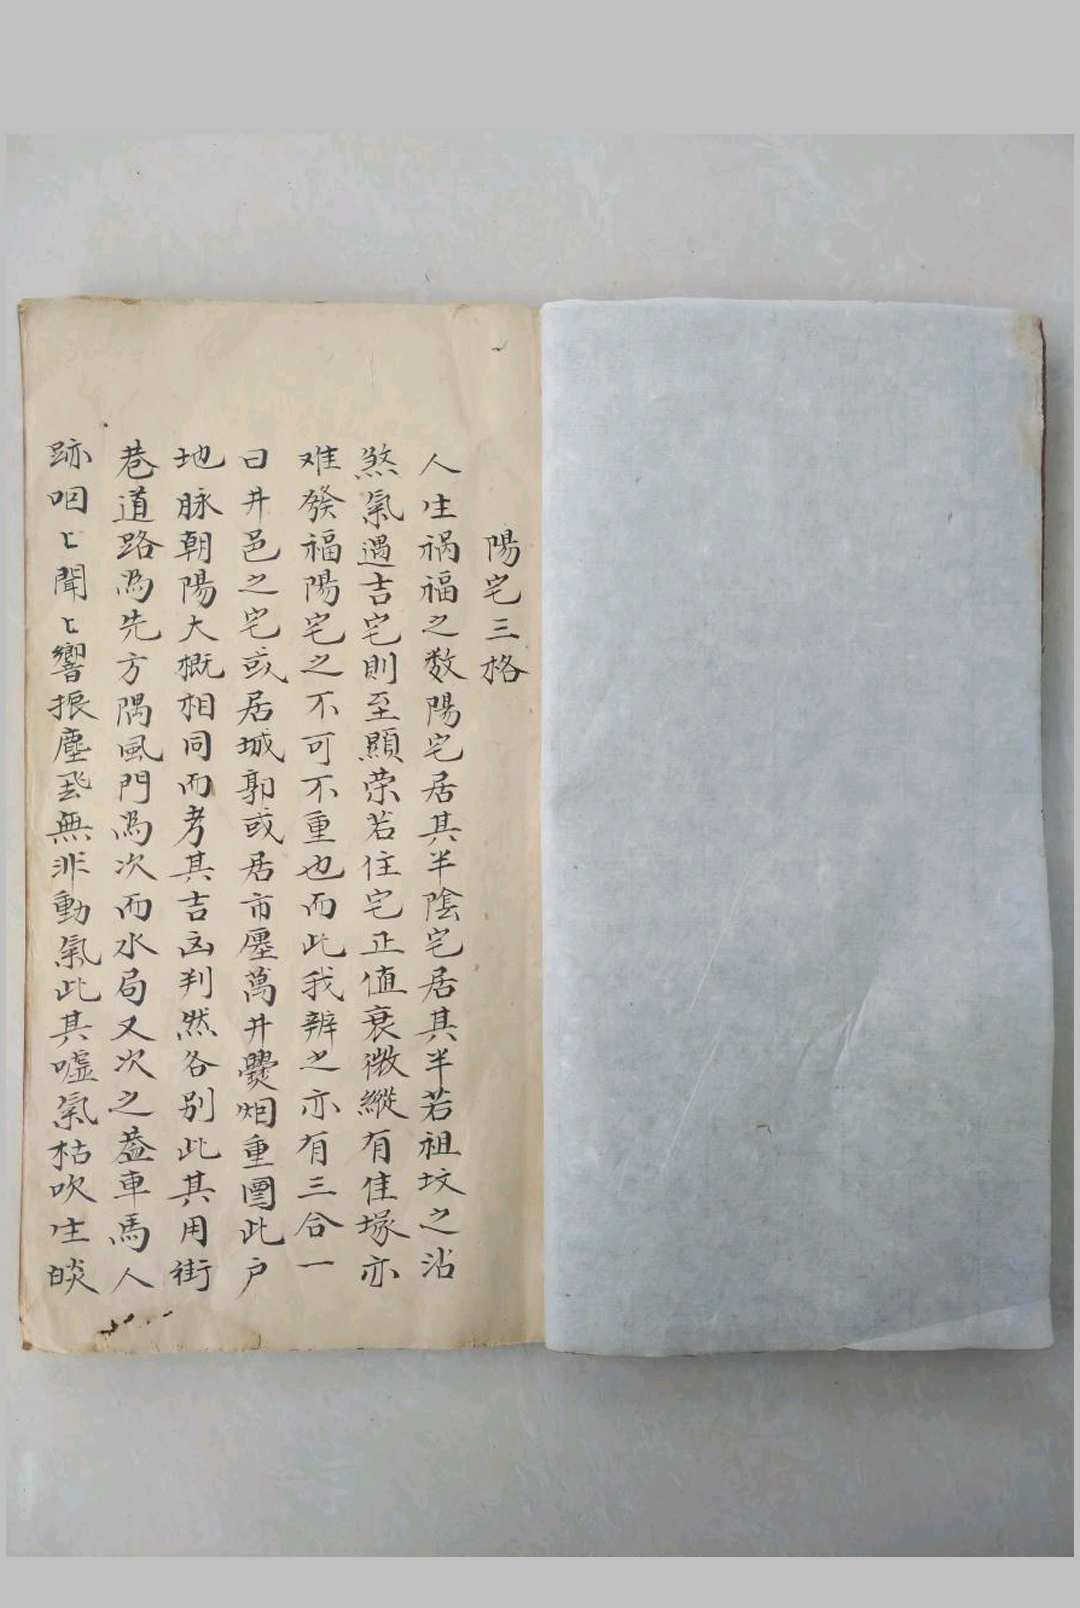 陽宅三格
人生祸福之数陽宅居其半陰宅居其半若祖坟之沾
煞氣遇吉宅則至顯荣若住宅正值衰微縱有佳塚亦
难發福陽宅之不可不重也而此我辨之亦有三合一
曰井邑之宅或居城郭或居市廛萬井爨烟重圍此户
地脉朝陽大概相同而考其吉凶判然各别此其用街
巷道路為先方隅風門為次而水局又次之葢車馬人
跡咽〻聞〻響振塵飛無非動氣此其嘘氣枯吹生